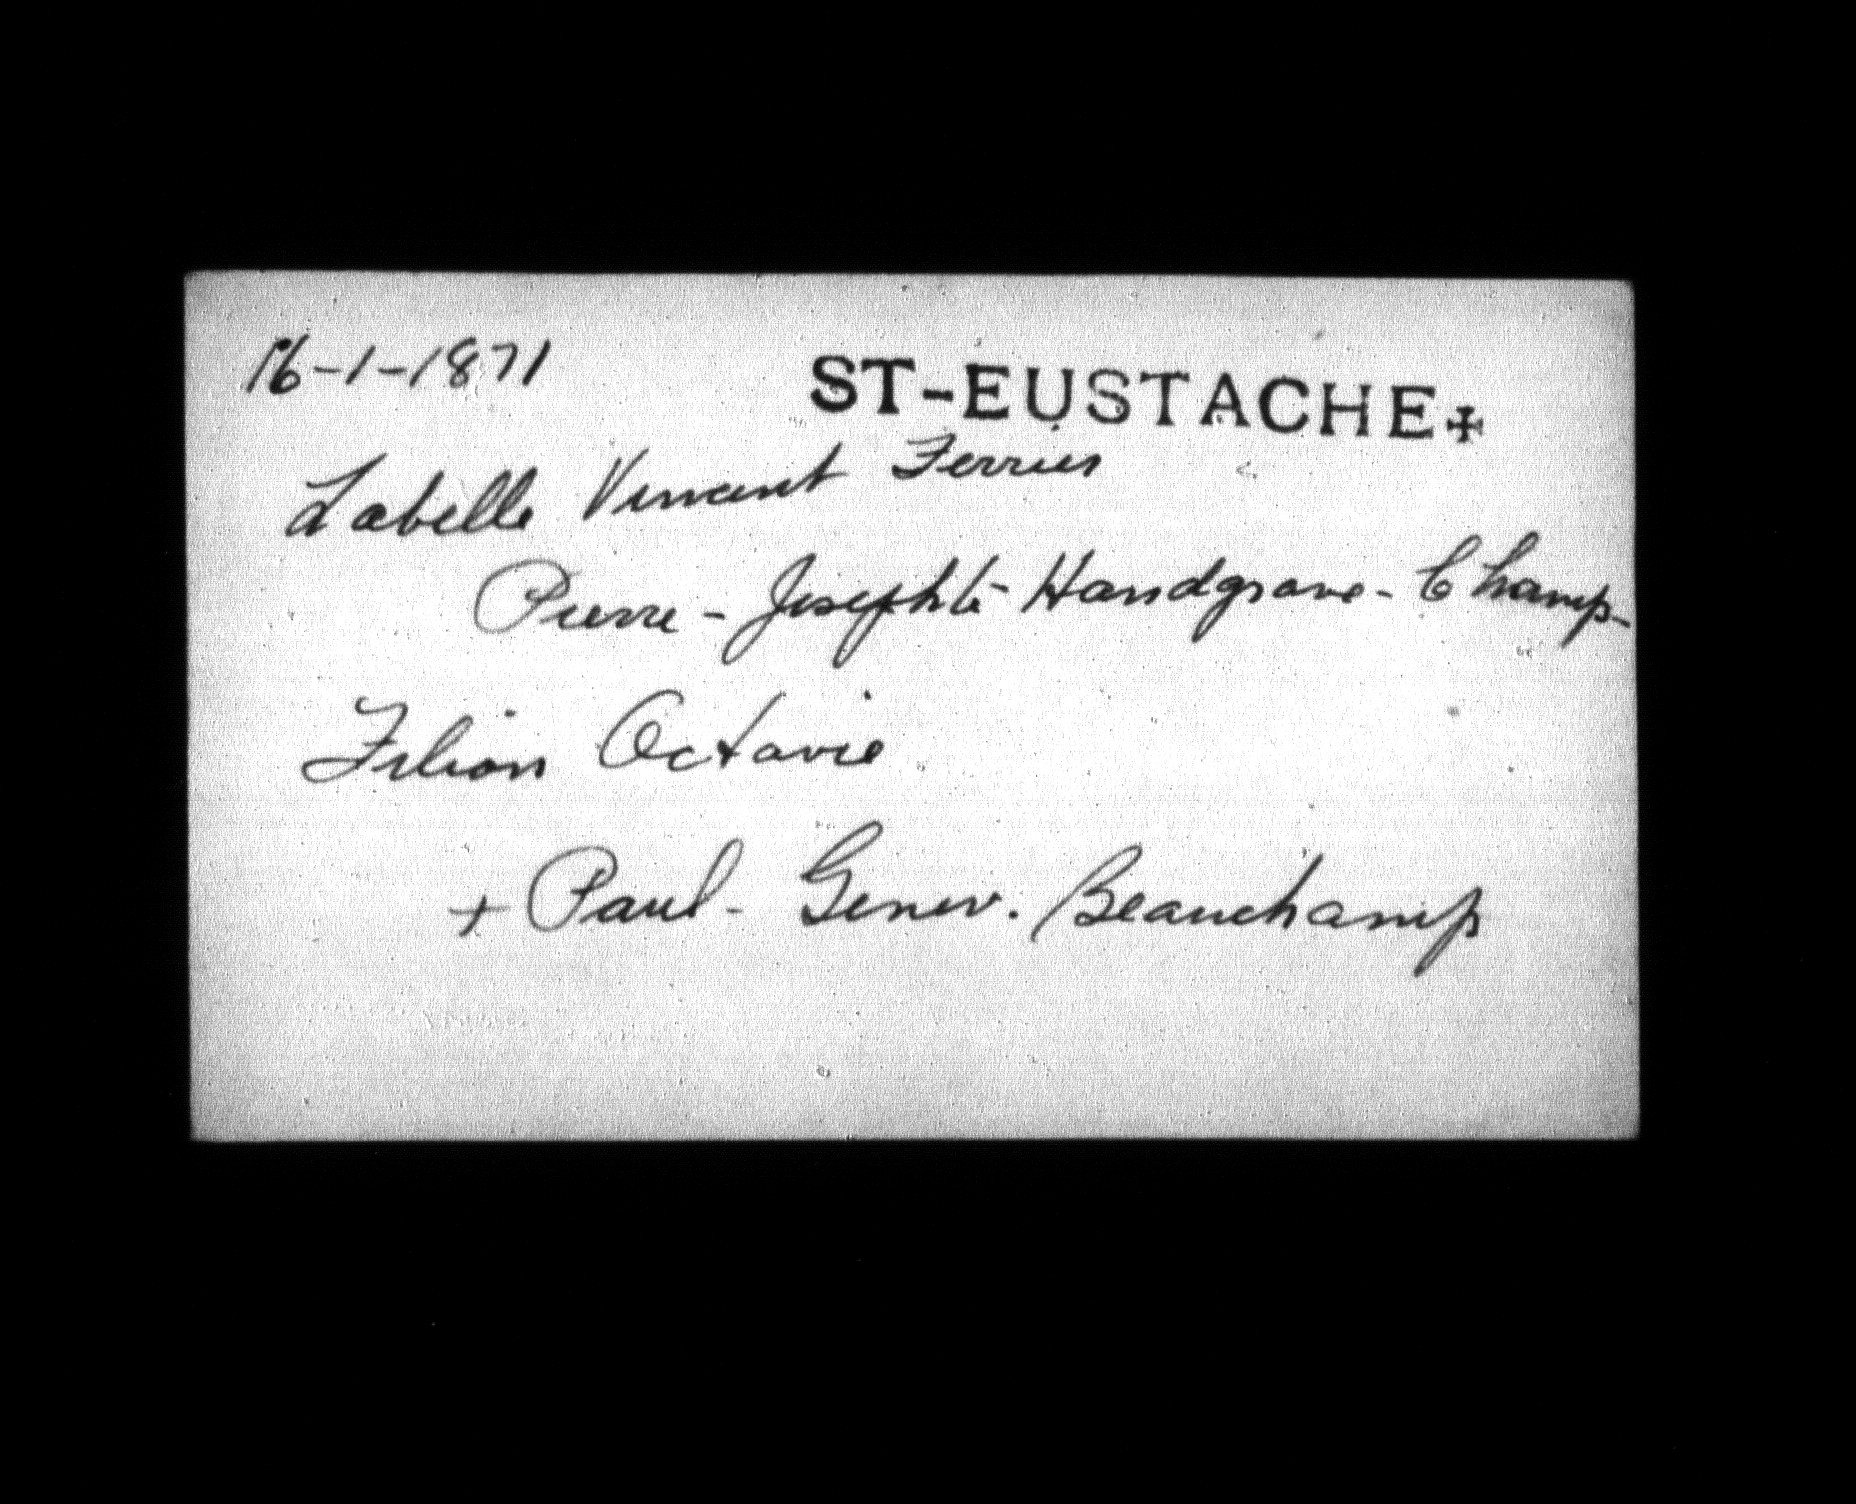 16-1-1871 ST-EUSTACHE✠
Labelle Vincent Ferrier
Pierre - Josephte Handgrave - Champ-
Filion Octavie
+ Paul - Genev. Beauchamp